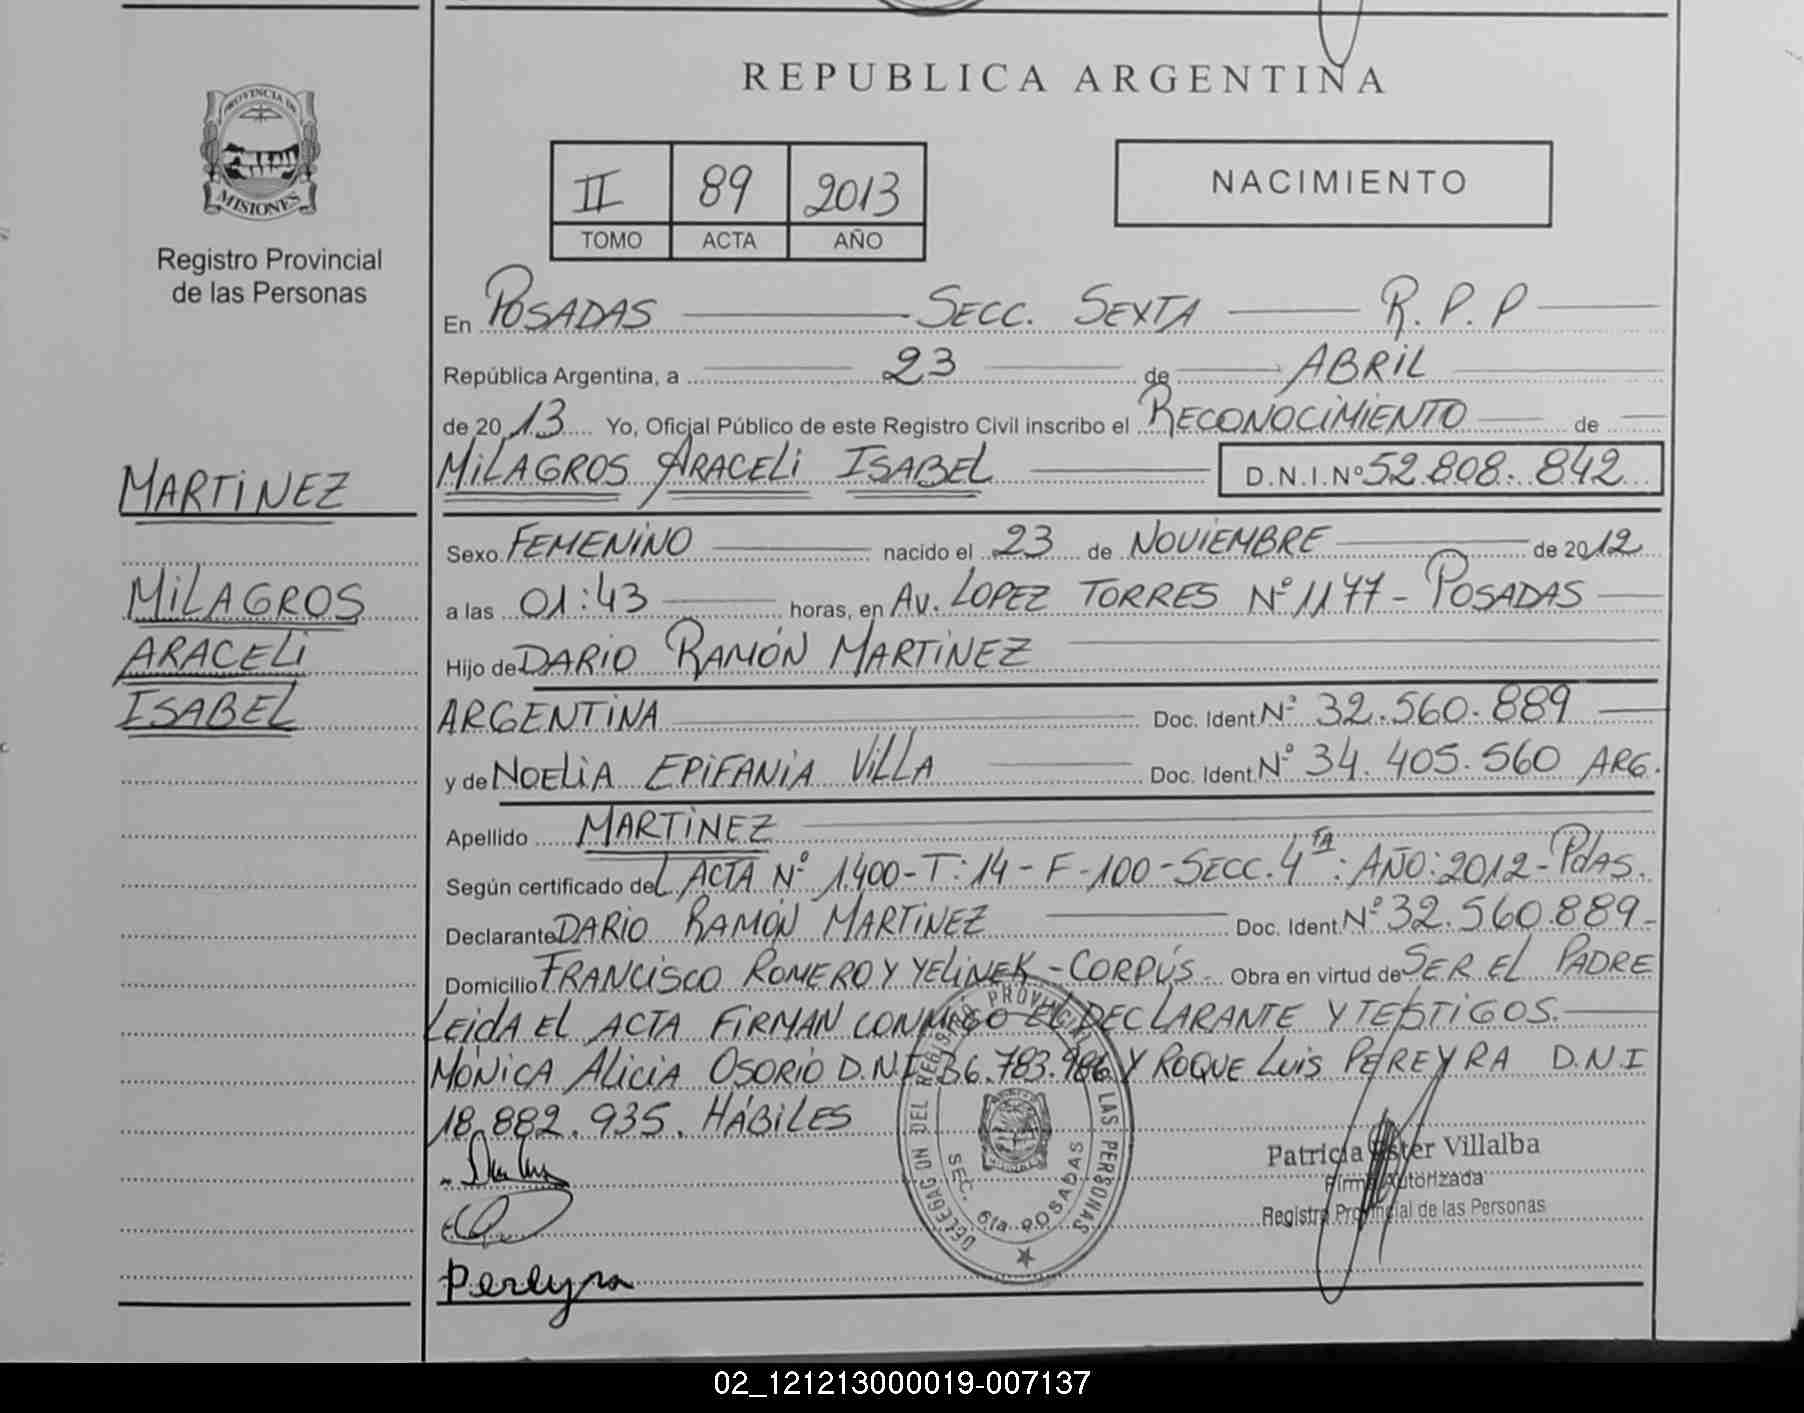 REPUBLICA ARGENTINA
PROVINCIA DE
MISIONES
Registro Provincial
de las Personas
II 89 2013
TOMO ACTA AÑO
NACIMIENTO
MARTINEZ
MILAGROS
ARACELI
ISABEL
En POSADAS SECC. SEXTA R.P.P
República Argentina, a 23 de ABRIL
de 2013 Yo, Oficial Público de este Registro Civil inscribo el RECONOCIMIENTO de
MILAGROS ARACELI ISABEL D.N.I.Nº 52.808.842
Sexo FEMENINO nacido el 23 de NOVIEMBRE de 2012
a las 01:43 horas, en AV. LOPEZ TORRES Nº 1177 - POSADAS
Hijo de DARIO RAMÓN MARTINEZ
ARGENTINA Doc. Ident. Nº 32.560.889
y de NOELIA EPIFANIA VILLA Doc. Ident. Nº 34.405.560 ARG.
Apellido MARTINEZ
Según certificado del ACTA Nº 1400 - T: 14 - F - 100 - SECC. 4TA: AÑO: 2012 - PdAS.
Declarante DARIO RAMÓN MARTINEZ Doc. Ident. Nº 32.560.889-
Domicilio FRANCISCO ROMERO Y YELINEK - CORPÚS - Obra en virtud de SER EL PADRE
LEIDA EL ACTA FIRMAN CONMIGO EL DECLARANTE Y TESTIGOS.
MÓNICA ALICIA OSORIO D.N.I 36.783.986 Y ROQUE LUIS PEREYRA D.N.I
18.882.935. HÁBILES
DELEGACION DEL REGISTRO PROVINCIAL DE LAS PERSONAS
SEC. 6ta. POSADAS
Patricia Ester Villalba
Firma Autorizada
Registro Provincial de las Personas
Pereyra
02_121213000019-007137